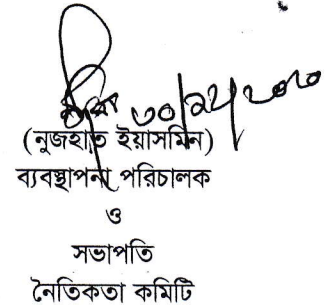 ৩০/১২/২০২০
(নুজহাত ইয়াসমিন)
ব্যবস্থাপনা পরিচালক
ও
সভাপতি
নৈতিকতা কমিটি